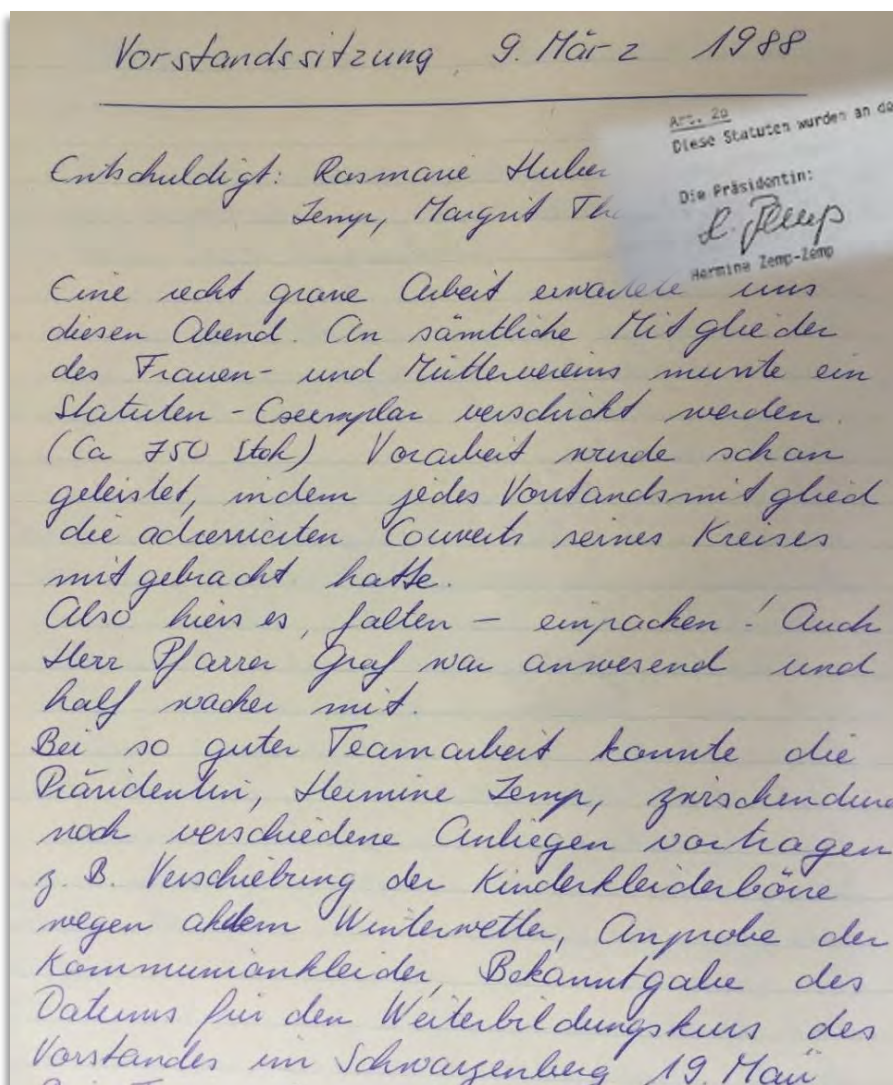 Vorstandssitzung 9. März 1988
Art. 20
Diese Statuten wurden an de
Die Präsidentin:
H. Zemp
Hermine Zemp-Zemp
Entschuldigt: Rosmarie Huber
Zemp, Margrit Th
Eine recht grosse Arbeit erwartete uns
diesen Abend. An sämtliche Mitglieder
des Frauen- und Müttervereins musste ein
Statuten-Exemplar verschickt werden.
(Ca 750 Stck) Vorarbeit wurde schon
geleistet, indem jedes Vorstandsmitglied
die adressierten Couverts seines Kreises
mitgebracht hatte.
Also hiess es, falten – einpacken! Auch
Herr Pfarrer Graf war anwesend und
half wacker mit.
Bei so guter Teamarbeit konnte die
Präsidentin, Hermine Zemp, zwischendurc
noch verschiedene Anliegen vortragen
z. B. Verschiebung der Kinderkleiderbörse
wegen Winterwetter, Anprobe der
Kommunionkleider, Bekanntgabe des
Datums für den Weiterbildungskurs des
Vorstandes im Schwarzenberg 19. Mai